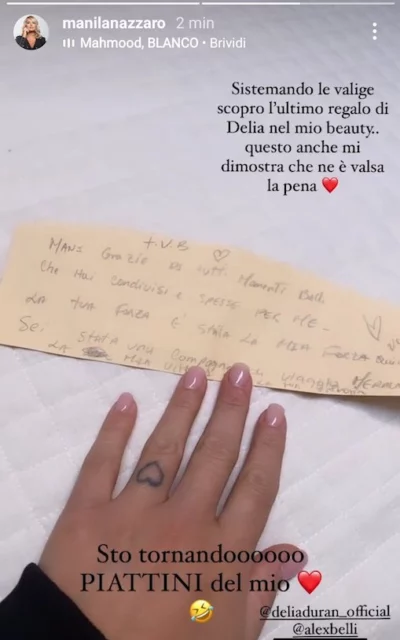 manilanazzaro 2 min
Mahmood, BLANCO • Brividi
Sistemando le valige
scopro l'ultimo regalo di
Delia nel mio beauty..
questo anche mi
dimostra che ne è valsa
la pena ❤️
T.V.B ♡
Grazie tutti Momenti
che Hai condivisi e SPESSE PER ME-
LA TUA FORZA E' STATA LA MIA FORZA
Sei STATA UNA Compagna viaggio
LA
Sto tornandoooooo
PIATTINI del mio ❤️
🤣
@deliaduran_official
@alexbelli